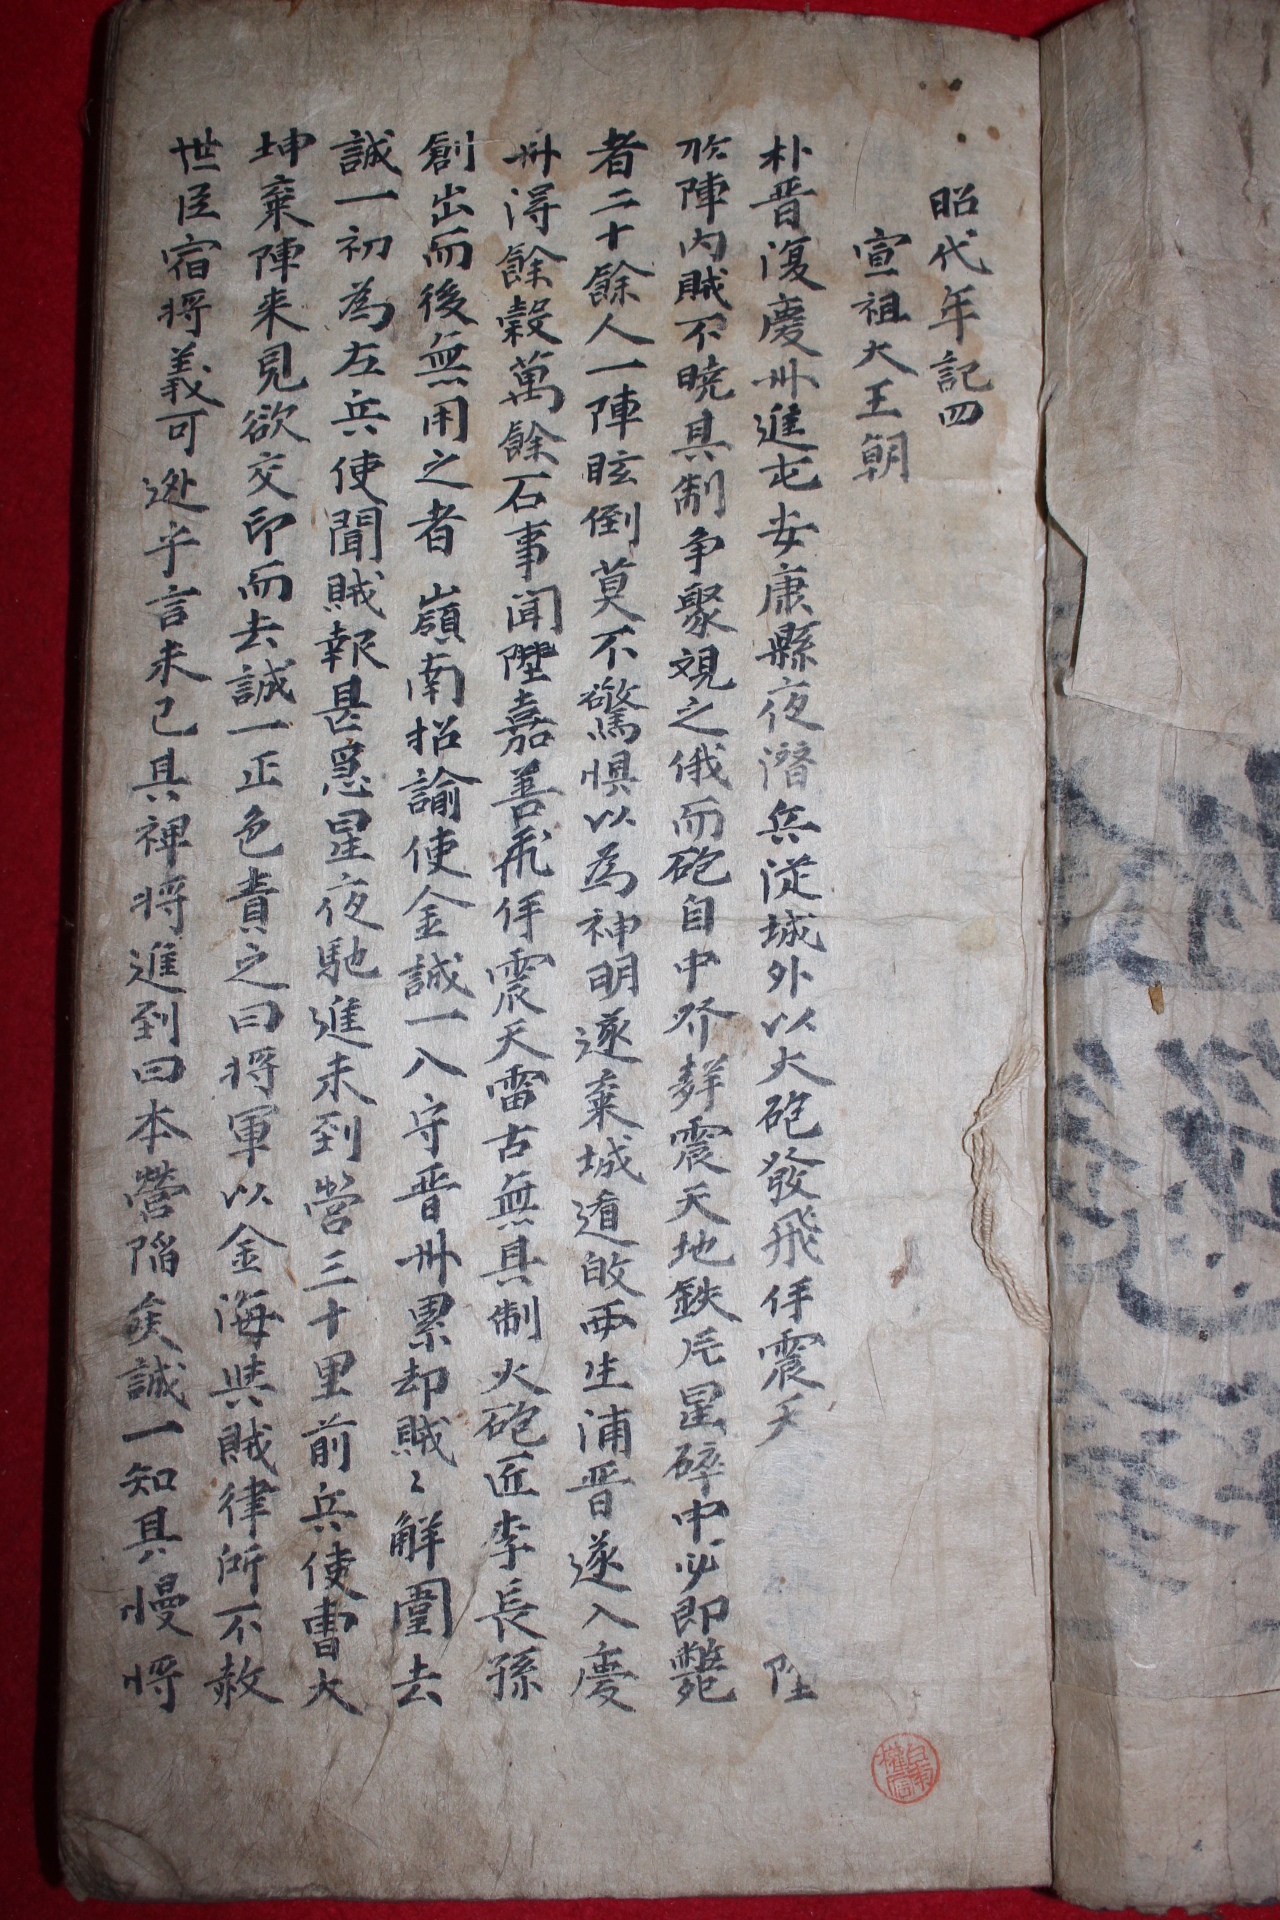 昭代年記四
宣祖大王朝
朴晋復慶州進屯安康縣夜潛兵從城外以大砲發飛侔震天 陞
於陣內賊不曉具制争聚視之俄而砲自中發聲震天地鉄片星碎中必即斃
者二十餘人一陣眩倒莫不驚惧以為神明遂棄城遁敀西生浦晋遂入慶
州得餘穀萬餘石事闻陞嘉善飛侔震天雷古無具制火砲匠李長孫
創出而後無用之者 嶺南招諭使金誠一入守晋州累却賊〻解圍去
誠一初為左兵使聞賊報甚急星夜馳進未到营三十里前兵使曺大
坤棄陣来見欲交印而去誠一正色責之曰将軍以金海與賊律所不赦
世臣宿将義可逃乎言未已具裨将進到曰本營陷矣誠一知具慢将